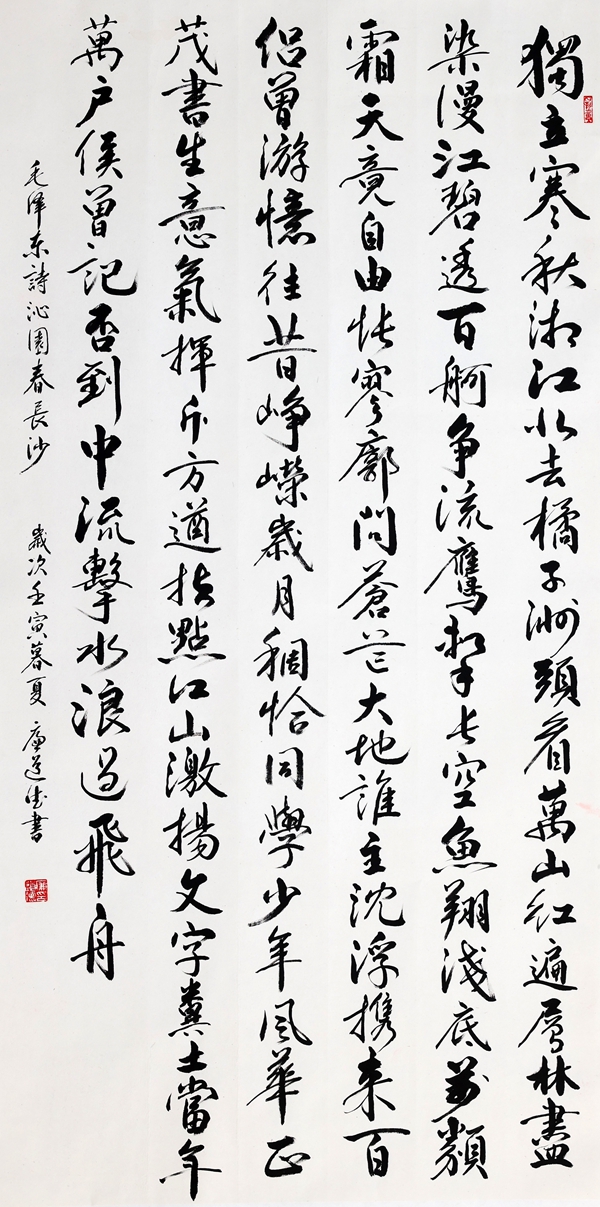 獨立寒秋湘江北去橘子洲頭看萬山紅遍層林盡
染漫江碧透百舸争流鷹擊長空魚翔淺底萬類
霜天竟自由悵寥廓問蒼茫大地誰主沈浮携来百
侣曾游憶往昔峥嶸歲月稠恰同學少年风華正
茂書生意氣揮斥方遒指點江山激揚文字糞土當年
萬户侯曾記否到中流擊水浪遏飛舟
毛泽东詩沁園春長沙 歲次壬寅暮夏 書